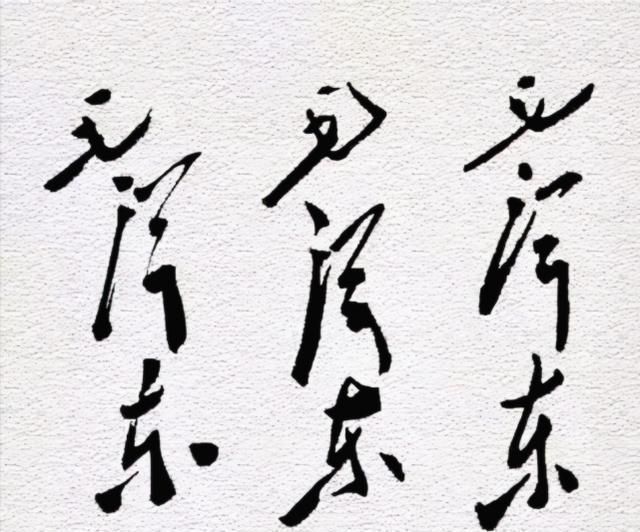 毛泽东
毛泽东
毛泽东